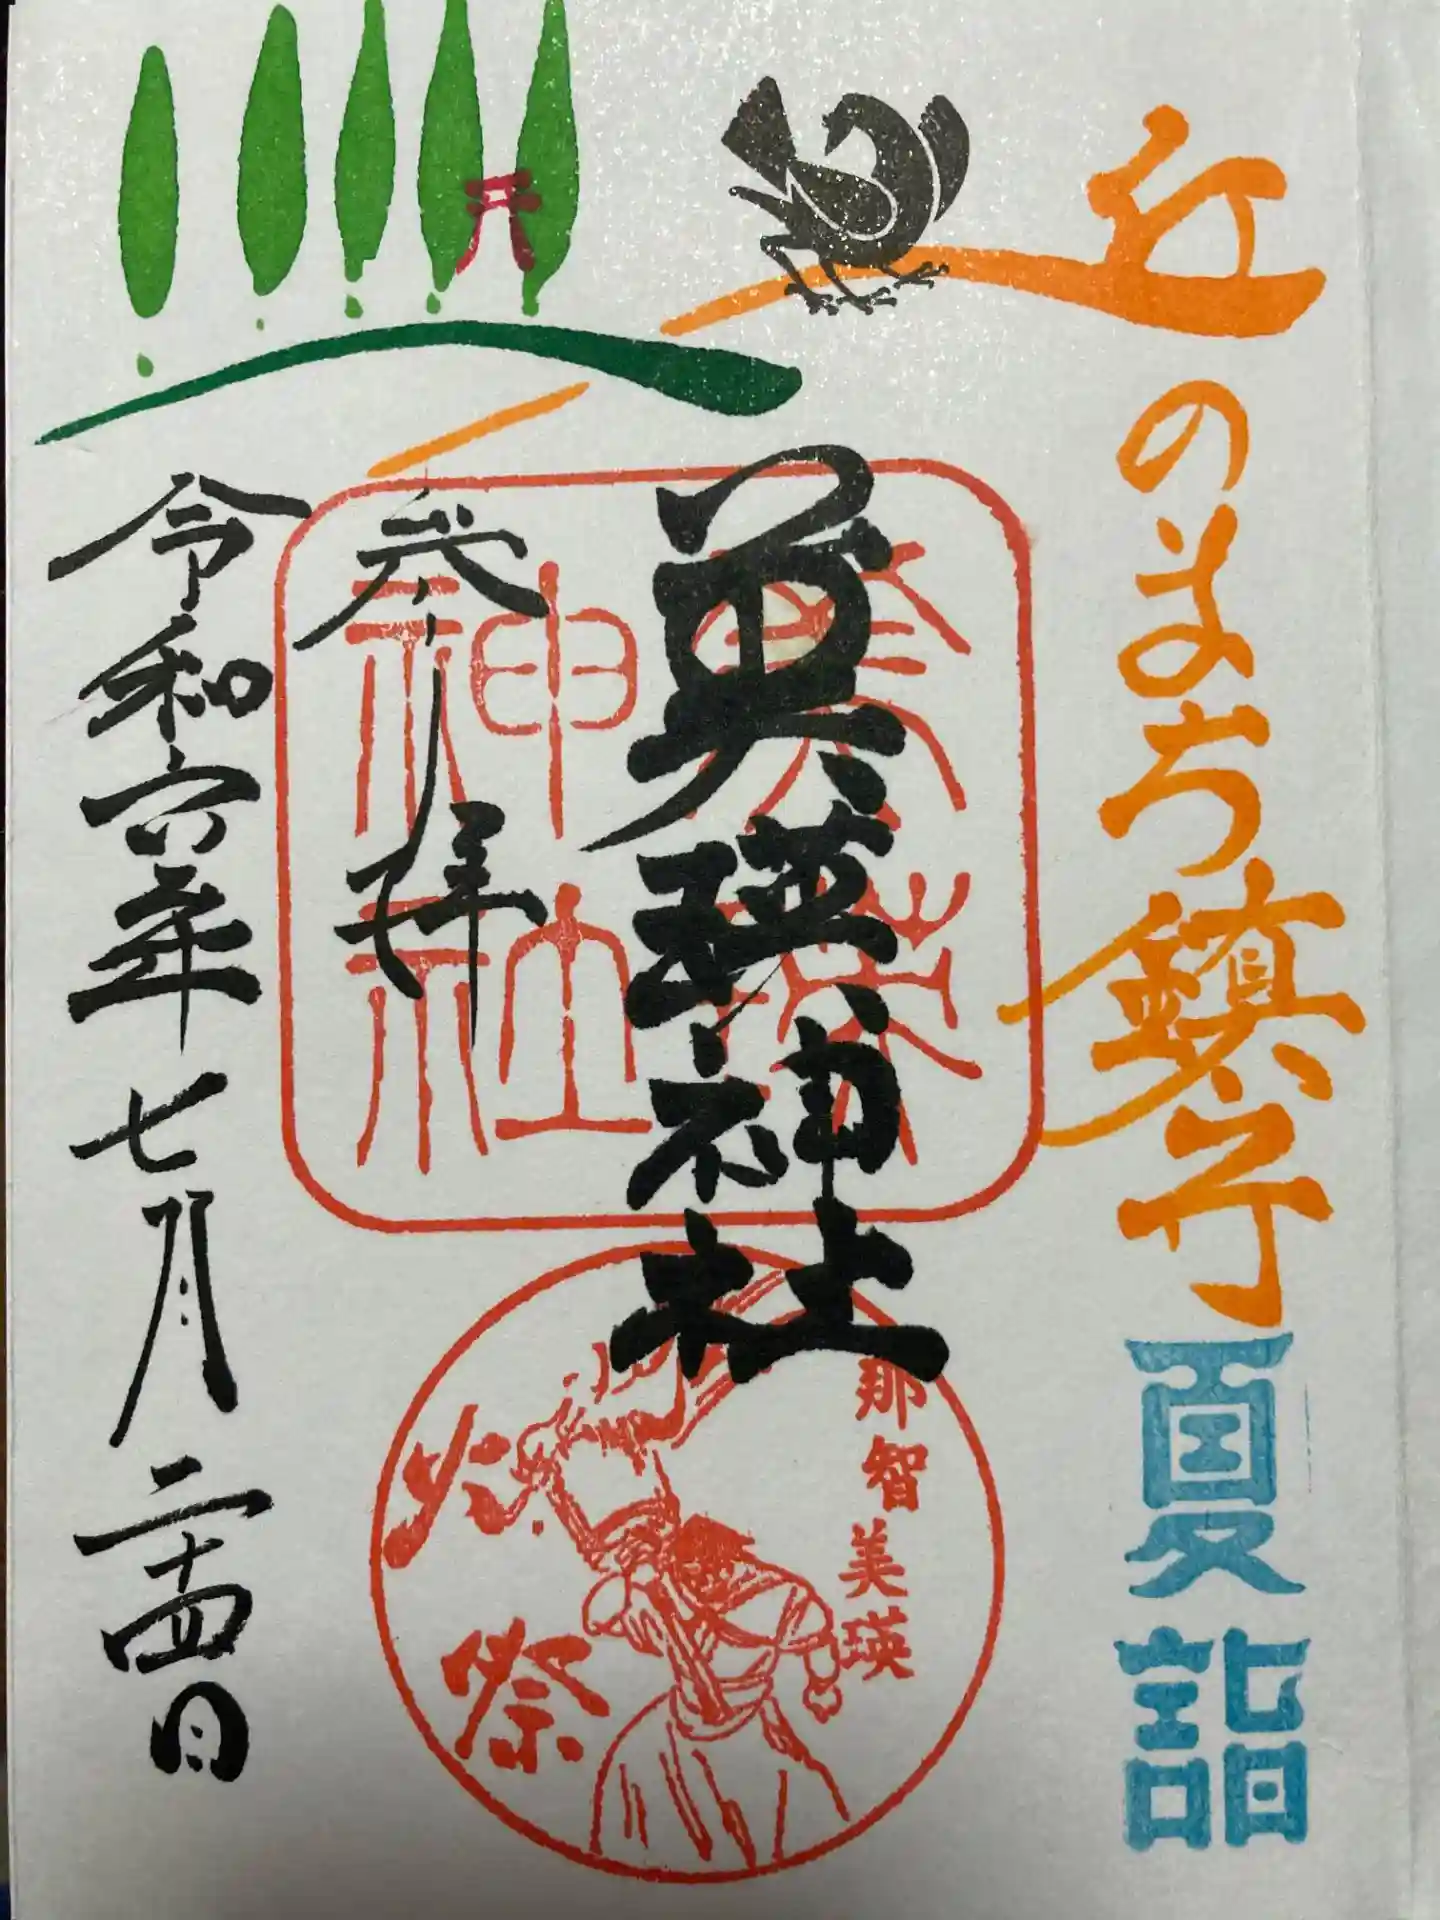 丘のまち鎮守
夏詣
美瑛神社
美瑛
神社
参拝
令和六年七月二十四日
那智
美瑛
火祭